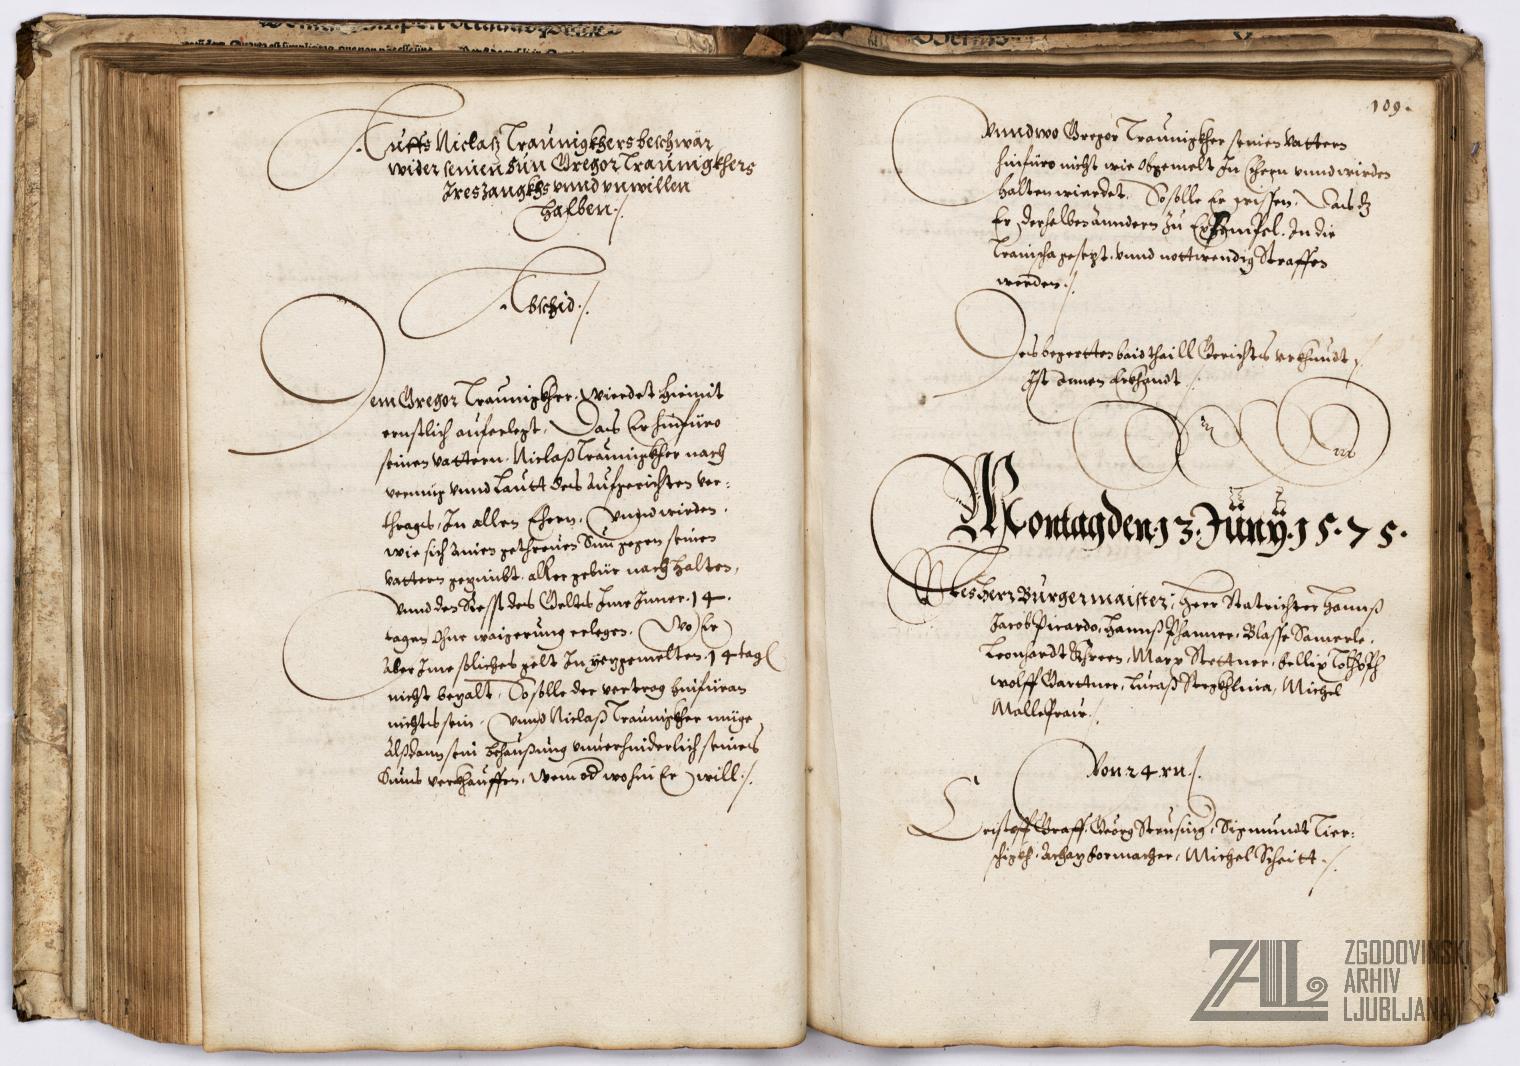 Auffs Niclaß Traunigkhers beschwär
wider seinen Sun Gregor Traunigkhers
Ires Zangkhs vnnd vnwillen
halben ./.
Abschid ./.
Dem Gregor Traunigkher, wierdet hiemit
ernstlich auferlegt, Das Er hinfüro
seinen vattern, Niclaß Traunigkher nach
vermüg vnnd Lautt des Aufgerichten ver-
thrags, In allen Ehern, vnnd wirden,
wie sich ainen gethreuen Sun gegen seinen
vattern gepürbt, aller gebür nach halten,
vnnd den Resst des Gelts Ime Inner 14
tagen ohne waigerung erlegen. Wo Er
Aber Ime solliches gelt In yezgemelten 14 tag
nicht bezalt, So solle der vertrag hinfüran
nichts sein, vnnd Niclaß Traunigkher müge
Alßdann sein behaußung vnuerhinderlich seines
Suns verkhauffen, wem od wohin Er will ./.
109.
Vnnd wo Gregor Traunigkher seinen Vattern
hinfüro nicht wie obgemelt In Ehern vnnd wierden
halten wierdet, So solle Er wissen, Das dz
Er, derselben Anndern zu Exempel, In die
Trantscha gesezt, vnnd nottwendig Straffen
werden ./.
Des begertten baid thaill Gerichts vrkhundt,
Ist Innen Erkhandt ./.
Montag den 13 Jüny 15.75.
Des herr Bürgermaister, herr Statrichter Hannß
Jacob Picardo, Hannß Phanner, Blasse Samerle,
Leonhardt Khreen, Marx Stettner, Fellix
Wolff Garttner, Lucaß, Michel
Von 24 rn ./.
Cristoff Graff, Georg Strusing, Sigmundt Tier-
Achaz Formacher, Michel Scheitt ./.
ZAL
ZGODOVINSKI
ARHIV
LJUBLJANA